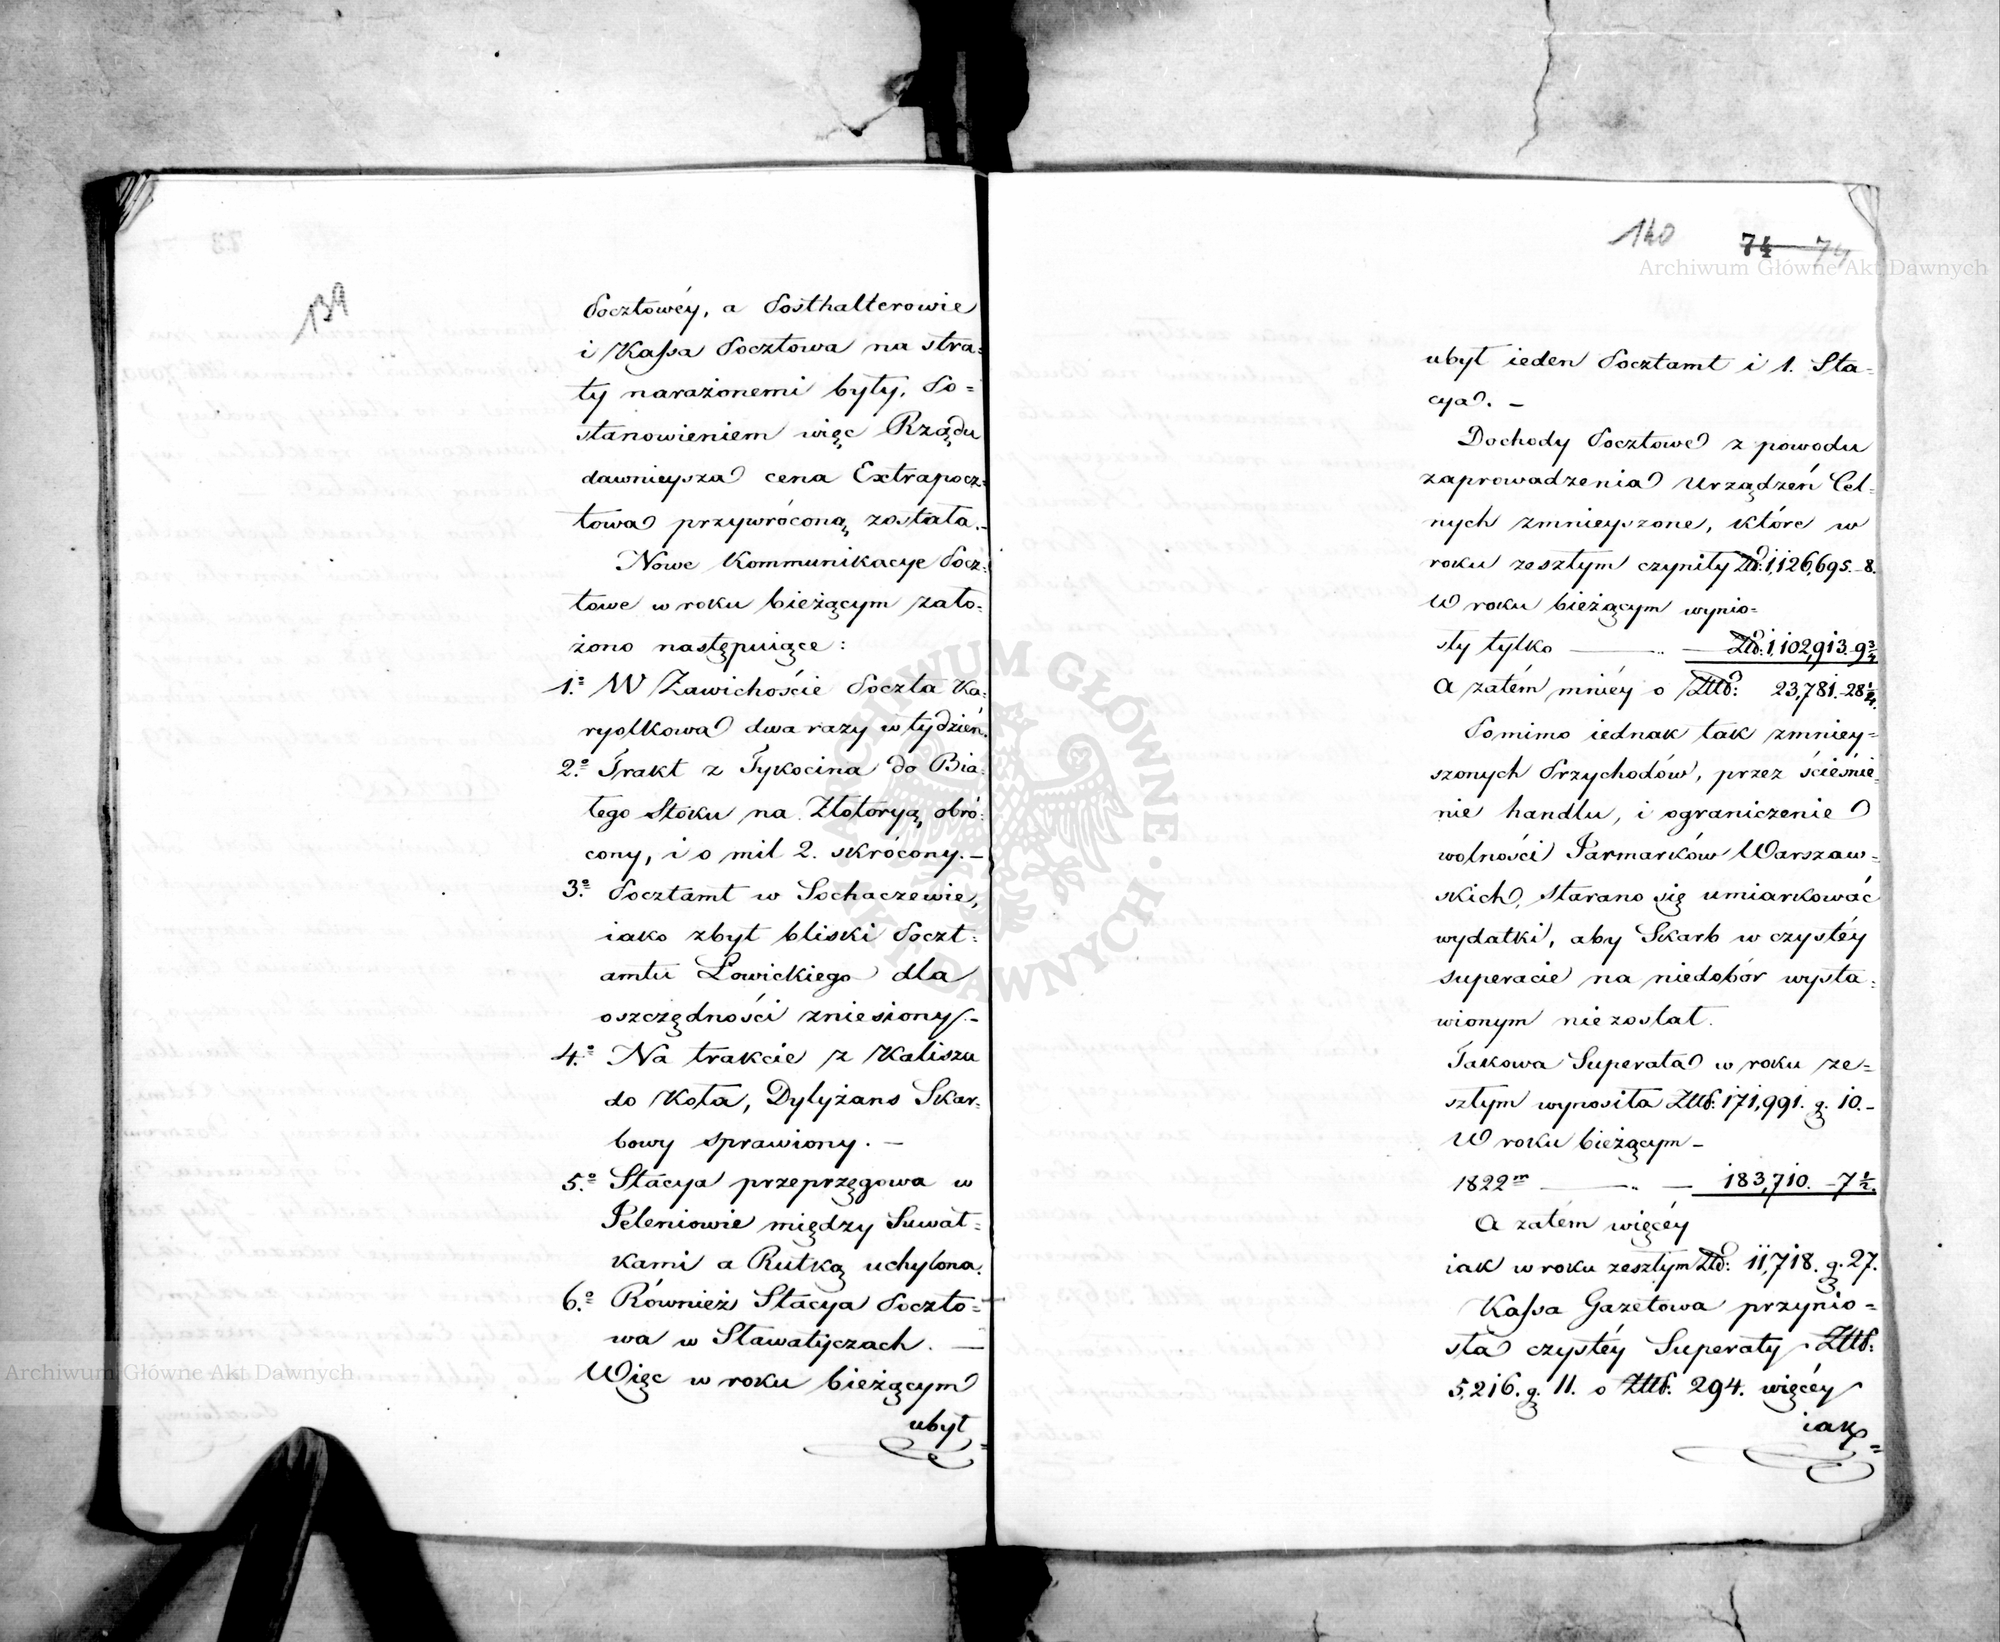 139
Pocztowéy, a Posthalterowie
i Kassa Pocztowa na stra=
ty narażonemi były, Po=
stanowieniem więc Rządu
dawnieysza cena Extrapocz=
towa przywróconą została.–
Nowe Kommunikacye Pocz=
towe w roku bieżącym zało=
żono następuiące:
1.º W Zawichoście Poczta Ka=
ryolkowa dwa razy w tydzień.
2.º Trakt z Tykocina do Bia=
łego Stoku na Złotoryą, obró=
cony, i o mil 2. skrócony.–
3.º Pocztamt w Sochaczewie,
iako zbyt bliski Poczt=
amtu Łowickiego dla
oszczędności zniesiony.–
4.º Na trakcie z Kalisza
do Koła, Dyliżans Skar=
bowy sprawiony. –
5.º Stacya przeprzęgowa w
Jeleniowie między Suwał=
kami a Rutką uchylona.
6.º Również Stacya Poczto=
wa w Sławatyczach. –
Więc w roku bieżącym
ubył
140 74 74
ubył ieden Pocztamt i 1. Sta=
cya. –
Dochody Pocztowe z powodu
zaprowadzenia Urządzeń Cel=
nych zmnieyszone, które w
roku zeszłym czyniły Złł: 1,126,695.–8.
W roku bieżącym wynio=
sły tylko — „ — Złł: 1,102,913.–9¾
A zatém mniéy o Złł: 23,781.–28¼.
Pomimo iednak tak zmniey=
szonych Przychodów, przez ścieśnie=
nie handlu, i ograniczenie
wolności Jarmarków Warszaw=
skich, starano się umiarkować
wydatki, aby Skarb w czystéy
superacie na niedobór wysta=
wionym nie został.
Takowa Superata w roku ze=
szłym wynosiła Złł: 171,991. g. 10.–
W roku bieżącym –
1822m — „ — 183,710. –7½.
A zatém więcéy
iak w roku zeszłym Złł: 11,718. g. 27.
Kassa Gazetowa przynio=
sła czystéy Superaty Złł:
5,216. g. 11. o Złł. 294. więcéy
iak
Archiwum Główne Akt Dawnych
Archiwum Główne Akt Dawnych
ARCHIWUM GŁÓWNE · AKT DAWNYCH ·